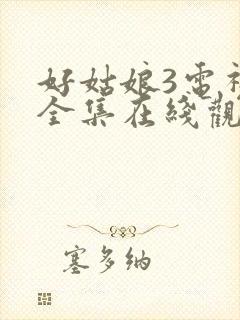 好姑娘3雷
全集在綫觀
塞多纳